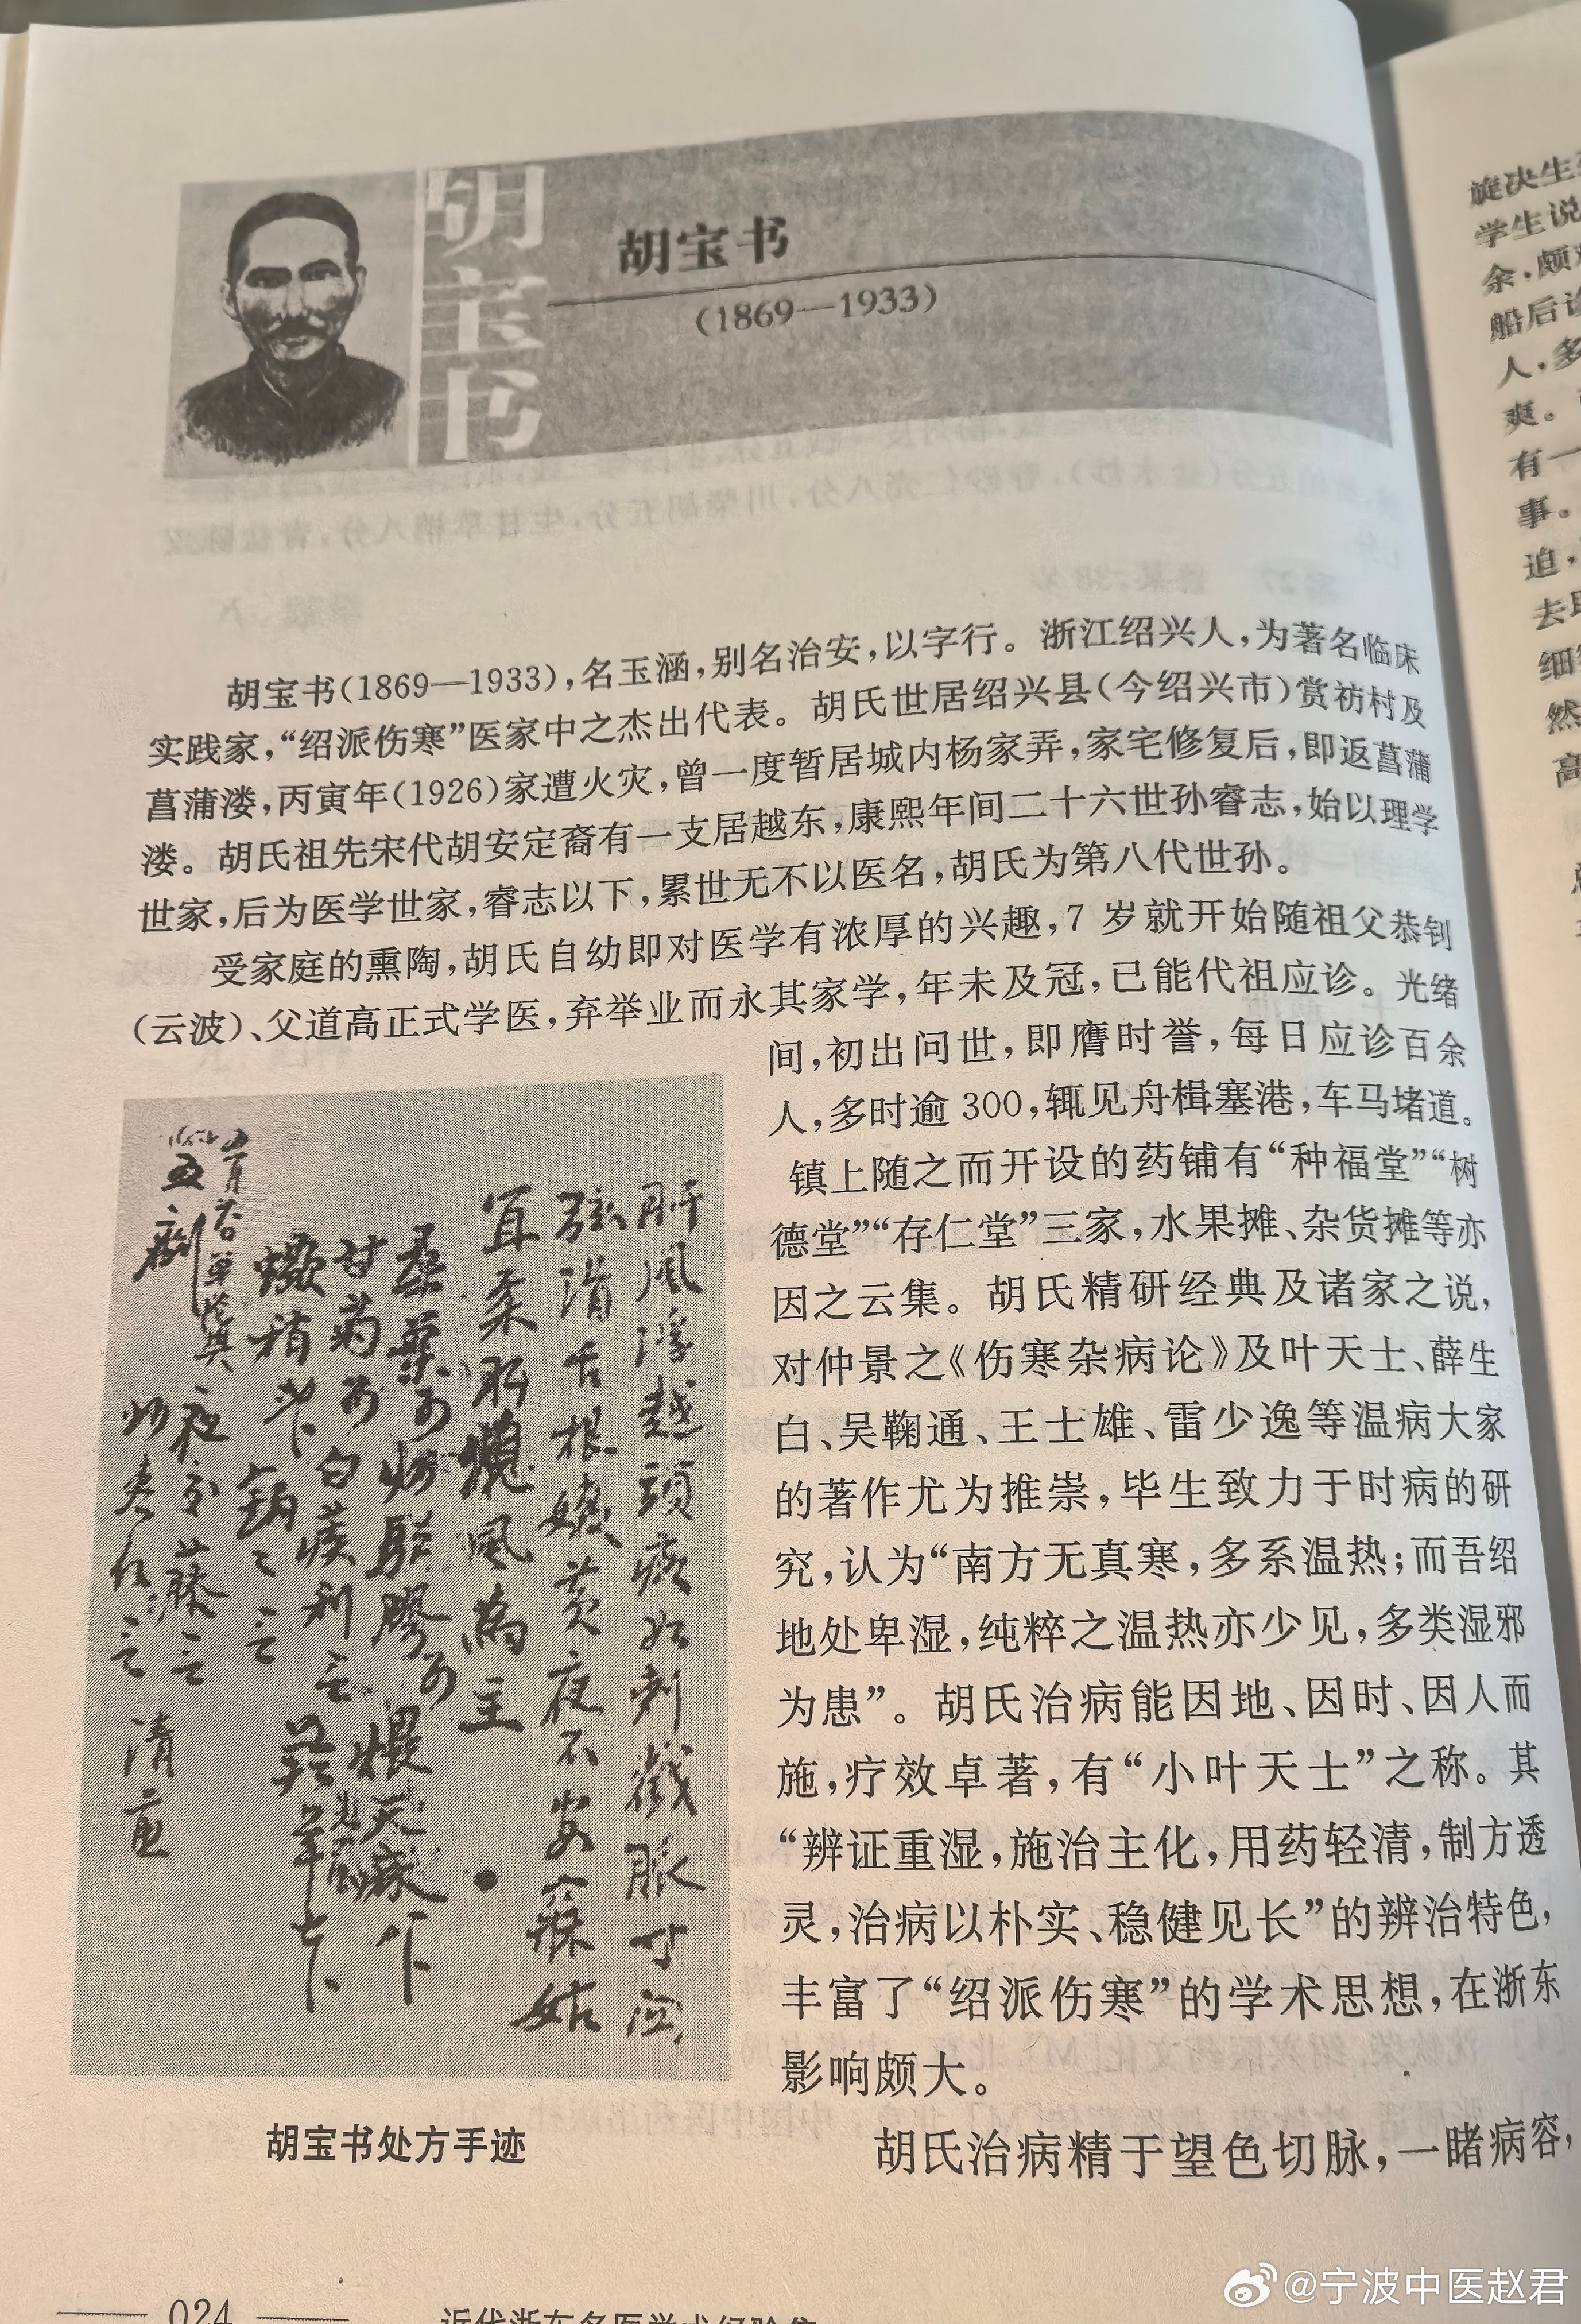 胡宝书
胡宝书
(1869—1933)
胡宝书(1869—1933),名玉涵,别名治安,以字行。浙江绍兴人,为著名临床
实践家,“绍派伤寒”医家中之杰出代表。胡氏世居绍兴县(今绍兴市)赏祊村及
菖蒲溇,丙寅年(1926)家遭火灾,曾一度暂居城内杨家弄,家宅修复后,即返菖蒲
溇。胡氏祖先宋代胡安定裔有一支居越东,康熙年间二十六世孙睿志,始以理学
世家,后为医学世家,睿志以下,累世无不以医名,胡氏为第八代世孙。
受家庭的熏陶,胡氏自幼即对医学有浓厚的兴趣,7岁就开始随祖父恭钊
(云波)、父道高正式学医,弃举业而永其家学,年未及冠,已能代祖应诊。光绪
间,初出问世,即膺时誉,每日应诊百余
人,多时逾300,辄见舟楫塞港,车马堵道。
镇上随之而开设的药铺有“种福堂”“树
德堂”“存仁堂”三家,水果摊、杂货摊等亦
因之云集。胡氏精研经典及诸家之说,
对仲景之《伤寒杂病论》及叶天士、薛生
白、吴鞠通、王士雄、雷少逸等温病大家
的著作尤为推崇,毕生致力于时病的研
究,认为“南方无真寒,多系温热;而吾绍
地处卑湿,纯粹之温热亦少见,多类湿邪
为患”。胡氏治病能因地、因时、因人而
施,疗效卓著,有“小叶天士”之称。其
“辨证重湿,施治主化,用药轻清,制方透
灵,治病以朴实、稳健见长”的辨治特色,
丰富了“绍派伤寒”的学术思想,在浙东
影响颇大。
胡氏治病精于望色切脉,一睹病容,
肝风浮越頭疼如刺戳脈寸
弦滑舌根嫩黄夜不安寐姑
宜柔肝熄風為主
胡宝书处方手迹
024
近代浙东名医学术经验集
旋决生
学生说
余,颇
船后诊
人,多
爽。
有一
事。
迫,
去
细
然
高
@宁波中医赵君